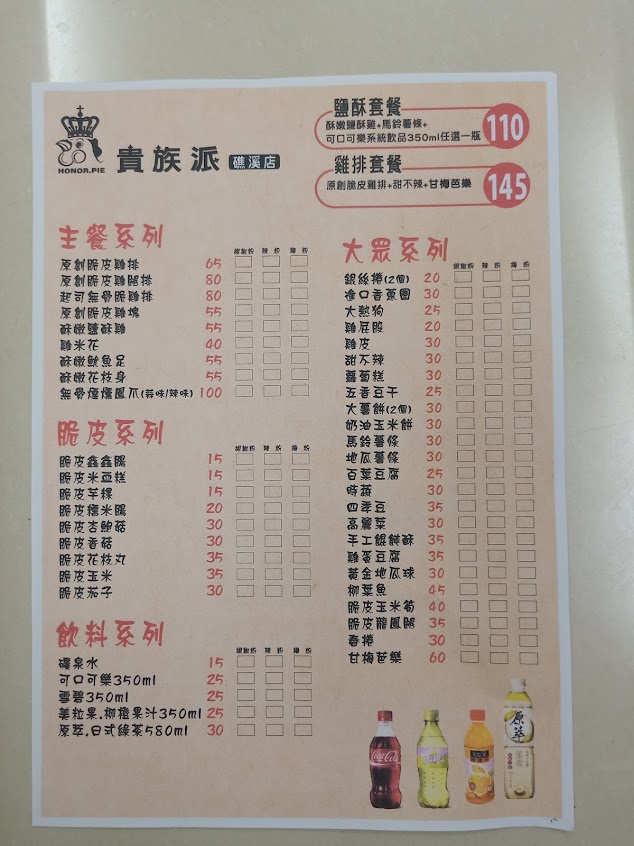 HONOR.PIE
貴族派 礁溪店
鹽酥套餐
酥嫩鹽酥雞+馬鈴薯條+
可口可樂系統飲品350ml任選一瓶
110
雞排套餐
原創脆皮雞排+甜不辣+甘梅芭樂
145
主餐系列
椒鹽粉 辣粉 梅粉
原創脆皮雞排 65
原創脆皮雞腿排 80
起司無骨腿雞排 80
原創脆皮雞塊 55
酥嫩鹽酥雞 55
雞米花 40
酥嫩魷魚足 55
酥嫩花枝身 55
無骨爆爆鳳爪(蒜味/辣味) 100
脆皮系列
椒鹽粉 辣粉 梅粉
脆皮鑫鑫腸 15
脆皮米血糕 15
脆皮芋粿 15
脆皮糯米腸 20
脆皮杏鮑菇 30
脆皮香菇 30
脆皮花枝丸 35
脆皮玉米 35
脆皮茄子 30
飲料系列
椒鹽粉 辣粉 梅粉
礦泉水 15
可口可樂350ml 25
雪碧350ml 25
美粒果.柳橙果汁350ml 25
原萃.日式綠茶580ml 30
大眾系列
椒鹽粉 辣粉 梅粉
銀絲捲(2個) 20
淨口香蔥圈 30
大熱狗 25
雞屁股 20
雞皮 30
甜不辣 30
蘿蔔糕 30
五香豆干 25
大薯餅(2個) 30
奶油玉米餅 30
馬鈴薯條 30
地瓜薯條 30
百葉豆腐 25
時蔬 30
四季豆 35
高麗菜 30
手工餛飩酥 35
雞蛋豆腐 35
黃金地瓜球 30
柳葉魚 45
脆皮玉米筍 40
脆皮龍鳳腿 35
春捲 30
甘梅芭樂 60
Coca-Cola
原萃